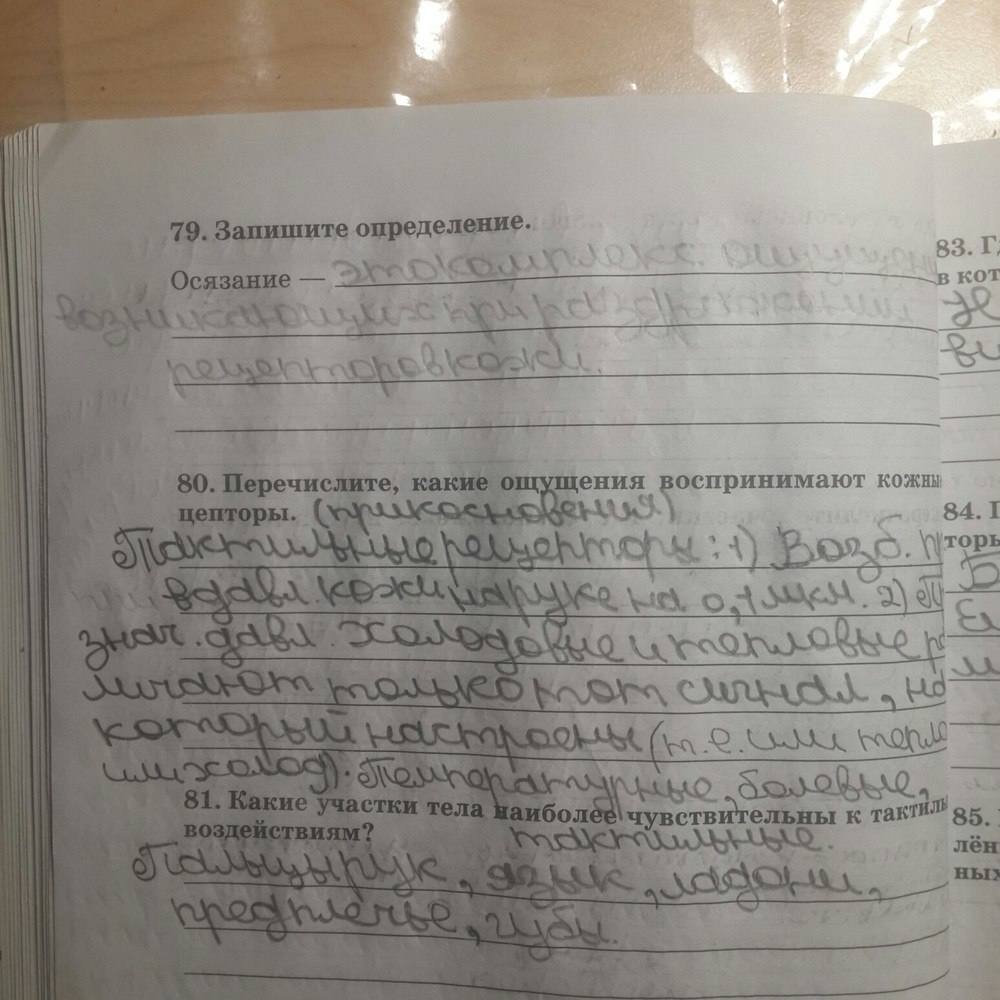 79. Запишите определение.
Осязание — это комплекс ощущени
возникающих при раздражении
рецепторов кожи.
80. Перечислите, какие ощущения воспринимают кожны
цепторы. (прикосновения)
Тактильные рецепторы: 1) Возб. п
вдавл. кожи на руке на 0,1 мкм. 2)
знач. давл. Холодовые и тепловые р
личают только тот сигнал, на
который настроены (т.е. или тепло
или холод). Температурные, болевые,
81. Какие участки тела наиболее чувствительны к тактиль
воздействиям? тактильные.
Пальцы рук, язык, ладони,
предплечье, губы.
83. Г
в кот
ви
84. П
торы
Б
85.
лён
ных